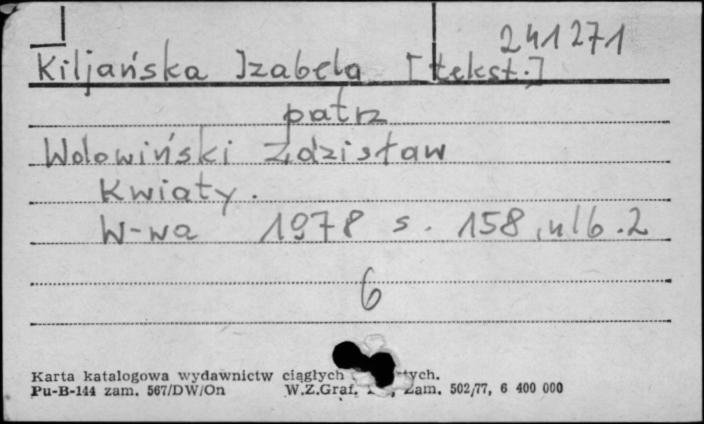 241271
Kiljańska Izabela [tekst.]
patrz
Wołowiński Zdzisław
Kwiaty.
W-wa 1978 s. 158, nlb. 2
6
Karta katalogowa wydawnictw ciągłych
Pu-B-144 zam. 567/DW/On W.Z.Graf. Zam. 502/77, 6 400 000